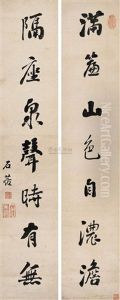 滿簾山色自濃澹
隔座泉聲時有無
石菴